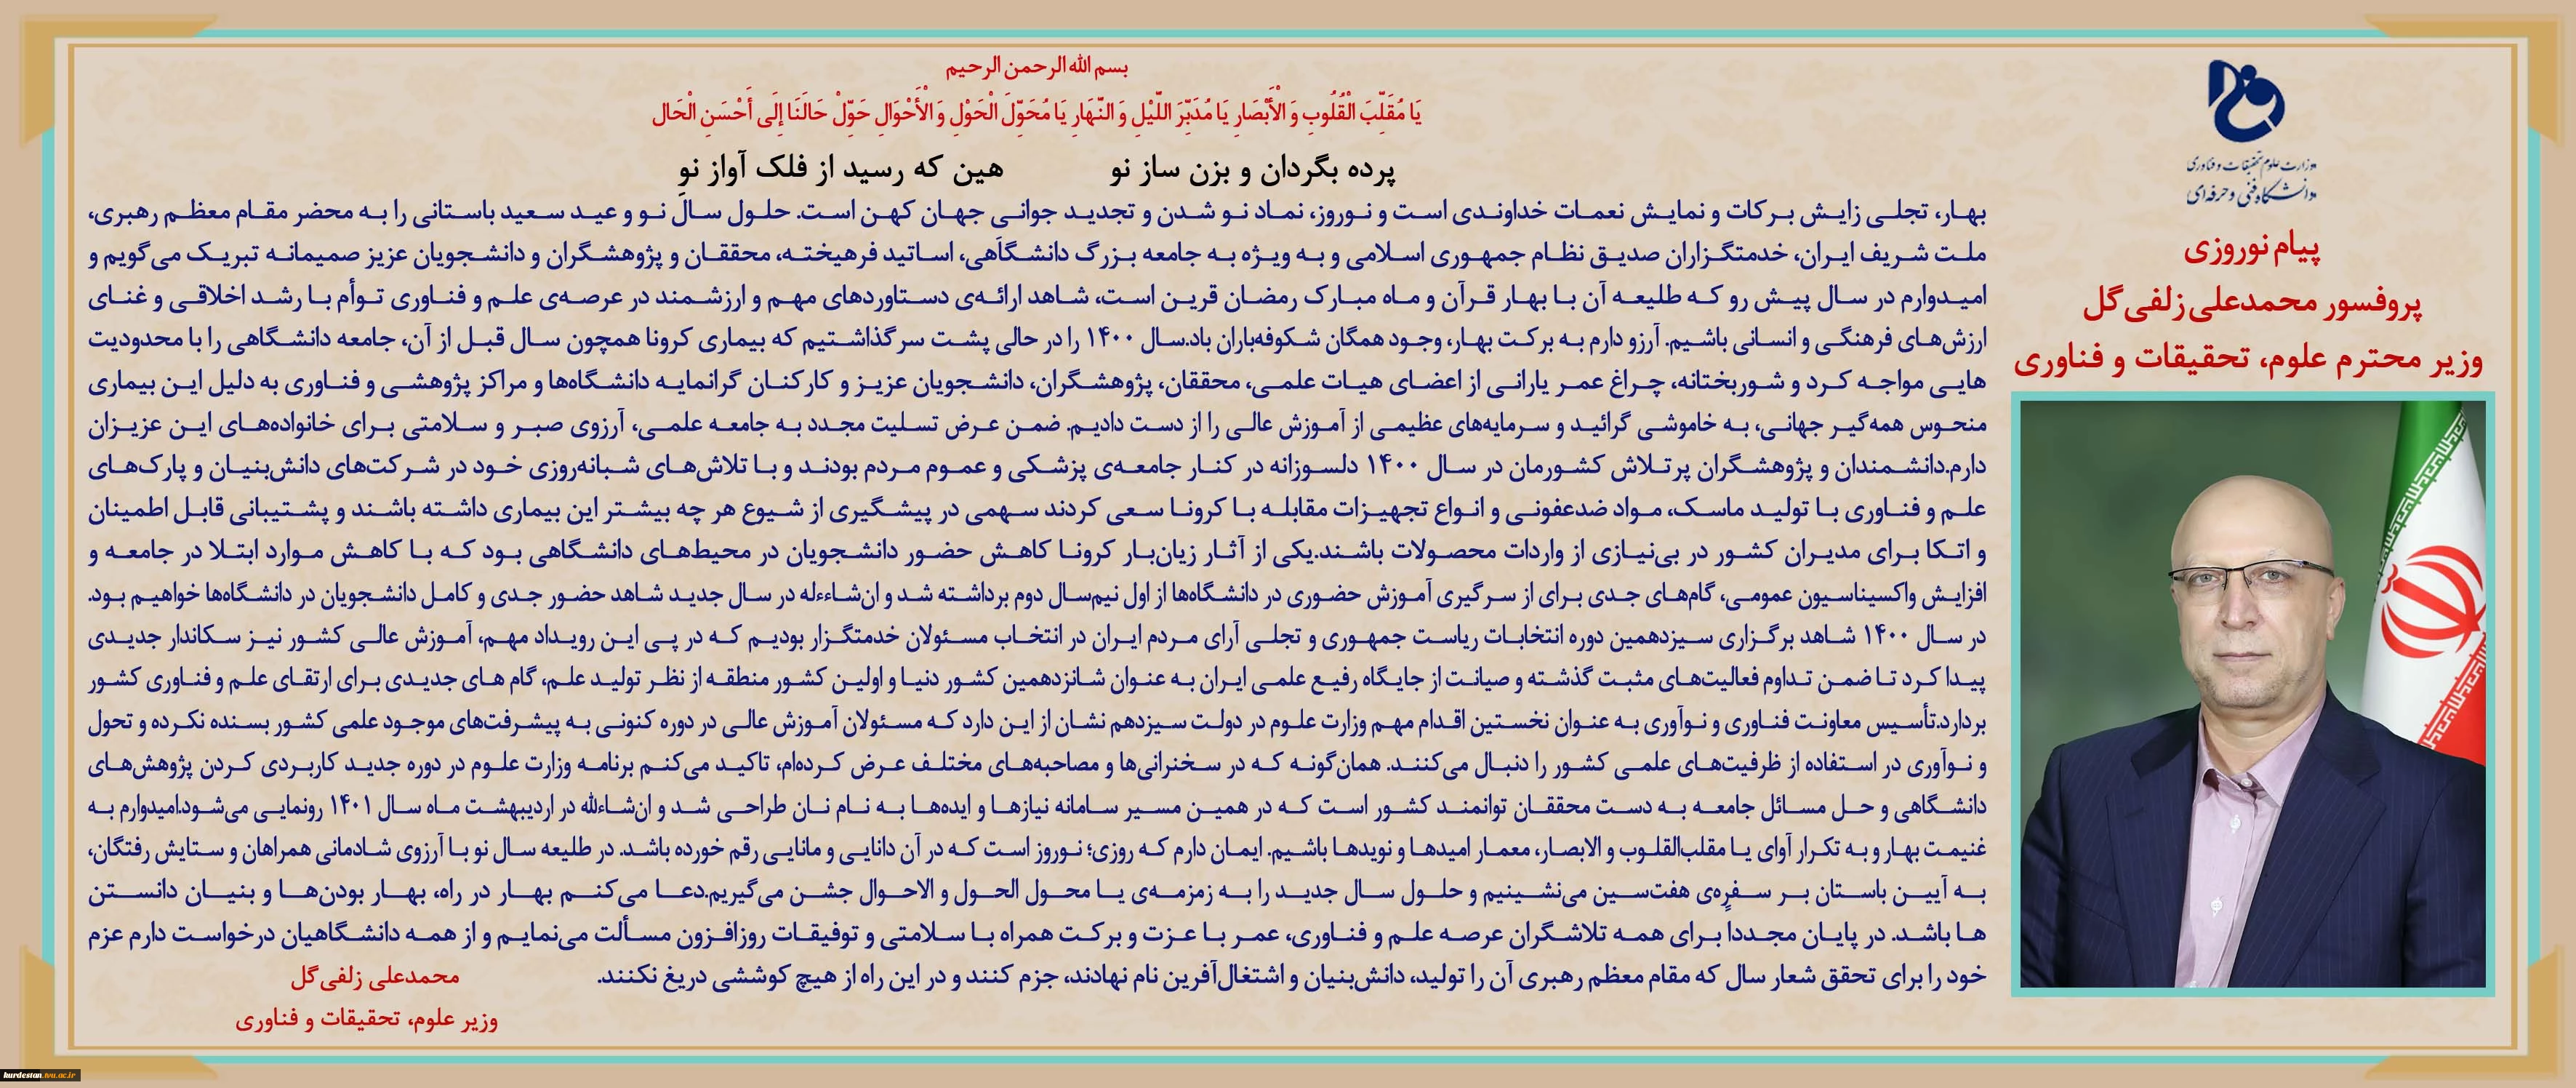 بسم الله الرحمن الرحیم
يَا مُقَلِّبَ الْقُلُوبِ وَ الْأَبْصَارِ يَا مُدَبِّرَ اللَّيْلِ وَ النَّهَارِ يَا مُحَوِّلَ الْحَوْلِ وَ الْأَحْوَالِ حَوِّلْ حَالَنَا إِلَى أَحْسَنِ الْحَال
پرده بگردان و بزن ساز نو هین که رسید از فلک آواز نو
بهار، تجلی زایش برکات و نمایش نعمات خداوندی است و نوروز، نماد نو شدن و تجدید جوانی جهان کهن است. حلول سال نو و عید سعید باستانی را به محضر مقام معظم رهبری،
ملت شریف ایران، خدمتگزاران صدیق نظام جمهوری اسلامی و به ویژه به جامعه بزرگ دانشگاهی، اساتید فرهیخته، محققان و پژوهشگران و دانشجویان عزیز صمیمانه تبریک می‌گویم و
امیدوارم در سال پیش رو که طلیعه آن با بهار قرآن و ماه مبارک رمضان قرین است، شاهد ارائه‌ی دستاوردهای مهم و ارزشمند در عرصه‌ی علم و فناوری توأم با رشد اخلاقی و غنای
ارزش‌های فرهنگی و انسانی باشیم. آرزو دارم به برکت بهار، وجود همگان شکوفه‌باران باد.سال ۱۴۰۰ را در حالی پشت سر گذاشتیم که بیماری کرونا همچون سال قبل از آن، جامعه دانشگاهی را با محدودیت
هایی مواجه کرد و شوربختانه، چراغ عمر یارانی از اعضای هیات علمی، محققان، پژوهشگران، دانشجویان عزیز و کارکنان گرانمایه دانشگاه‌ها و مراکز پژوهشی و فناوری به دلیل این بیماری
منحوس همه‌گیر جهانی، به خاموشی گرائید و سرمایه‌های عظیمی از آموزش عالی را از دست دادیم. ضمن عرض تسلیت مجدد به جامعه علمی، آرزوی صبر و سلامتی برای خانواده‌های این عزیزان
دارم.دانشمندان و پژوهشگران پرتلاش کشورمان در سال ۱۴۰۰ دلسوزانه در کنار جامعه‌ی پزشکی و عموم مردم بودند و با تلاش‌های شبانه‌روزی خود در شرکت‌های دانش‌بنیان و پارک‌های
علم و فناوری با تولید ماسک، مواد ضدعفونی و انواع تجهیزات مقابله با کرونا سعی کردند سهمی در پیشگیری از شیوع هر چه بیشتر این بیماری داشته باشند و پشتیبانی قابل اطمینان
و اتکا برای مدیران کشور در بی‌نیازی از واردات محصولات باشند.یکی از آثار زیان‌بار کرونا کاهش حضور دانشجویان در محیط‌های دانشگاهی بود که با کاهش موارد ابتلا در جامعه و
افزایش واکسیناسیون عمومی، گام‌های جدی برای از سرگیری آموزش حضوری در دانشگاه‌ها از اول نیم‌سال دوم برداشته شد و ان‌شاءءله در سال جدید شاهد حضور جدی و کامل دانشجویان در دانشگاه‌ها خواهیم بود.
در سال ۱۴۰۰ شاهد برگزاری سیزدهمین دوره انتخابات ریاست جمهوری و تجلی آرای مردم ایران در انتخاب مسئولان خدمتگزار بودیم که در پی این رویداد مهم، آموزش عالی کشور نیز سکاندار جدیدی
پیدا کرد تا ضمن تداوم فعالیت‌های مثبت گذشته و صیانت از جایگاه رفیع علمی ایران به عنوان شانزدهمین کشور دنیا و اولین کشور منطقه از نظر تولید علم، گام های جدیدی برای ارتقای علم و فناوری کشور
بردارد.تأسیس معاونت فناوری و نوآوری به عنوان نخستین اقدام مهم وزارت علوم در دولت سیزدهم نشان از این دارد که مسئولان آموزش عالی در دوره کنونی به پیشرفت‌های موجود علمی کشور بسنده نکرده و تحول
و نوآوری در استفاده از ظرفیت‌های علمی کشور را دنبال می‌کنند. همان‌گونه که در سخنرانی‌ها و مصاحبه‌های مختلف عرض کرده‌ام، تاکید می‌کنم برنامه وزارت علوم در دوره جدید کاربردی کردن پژوهش‌های
دانشگاهی و حل مسائل جامعه به دست محققان توانمند کشور است که در همین مسیر سامانه نیازها و ایده‌ها به نام نان طراحی شد و ان‌شاءالله در اردیبهشت ماه سال ۱۴۰۱ رونمایی می‌شود.امیدوارم به
غنیمت بهار و به تکرار آوای یا مقلب‌القلوب و الابصار، معمار امیدها و نویدها باشیم. ایمان دارم که روزی؛ نوروز است که در آن دانایی و مانایی رقم خورده باشد. در طلیعه سال نو با آرزوی شادمانی همراهان و ستایش رفتگان،
به آیین باستان بر سفره‌ی هفت‌سین می‌نشینیم و حلول سال جدید را به زمزمه‌ی یا محول الحول و الاحوال جشن می‌گیریم.دعا می‌کنم بهار در راه، بهار بودن‌ها و بنیان دانستن
ها باشد. در پایان مجددا برای همه تلاشگران عرصه علم و فناوری، عمر با عزت و برکت همراه با سلامتی و توفیقات روزافزون مسألت می‌نمایم و از همه دانشگاهیان درخواست دارم عزم
خود را برای تحقق شعار سال که مقام معظم رهبری آن را تولید، دانش‌بنیان و اشتغال‌آفرین نام نهادند، جزم کنند و در این راه از هیچ کوششی دریغ نکنند.
محمدعلی زلفی‌گل
وزیر علوم، تحقیقات و فناوری
وزارت علوم تحقیقات و فناوری
دانشگاه فنی و حرفه‌ای
پیام نوروزی
پروفسور محمدعلی زلفی‌گل
وزیر محترم علوم، تحقیقات و فناوری
kurdestan.tvu.ac.ir